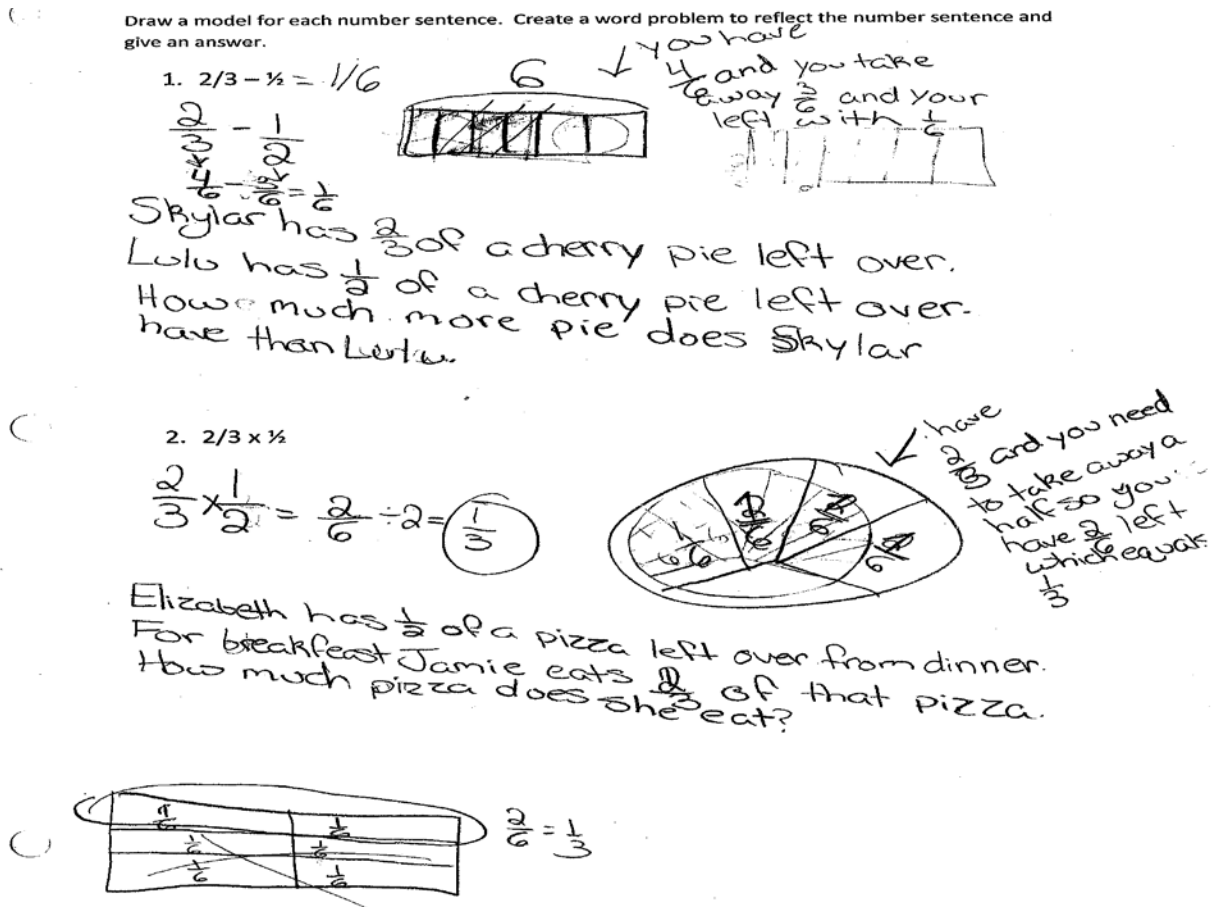 Draw a model for each number sentence. Create a word problem to reflect the number sentence and
give an answer.
1. 2/3 – ½ = 1/6
6
you have
4/6 and you take
away 3/6 and your
left with 1/6
2/3 - 1/2
4/6 - 3/6 = 1/6
Skylar has 2/3 of a cherry pie left over.
Lulu has 1/2 of a cherry pie left over.
How much more pie does Skylar
have than Lulu.
2. 2/3 x ½
2/3 x 1/2 = 2/6 ÷ 2 = 1/3
1/6
have
2/3 and you need
to take away a
half so you
have 2/6 left
which equals
1/3
Elizabeth has 1/2 of a pizza left over from dinner.
For breakfeast Jamie eats 2/3 of that pizza.
How much pizza does she eat?
1/6
1/6 1/6
1/6 1/6
2/6 = 1/3